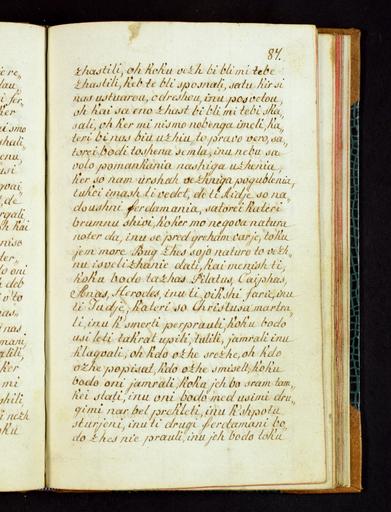 87.
zhastili, oh koku vezh bi bli mi tebe
zhastili, keb te bli sposnali, satu kir si
nas ustvarou, odreshou, inu posvetou,
oh kai sa eno zhast bi bli mi tebi ska„
sali, oh ker mi nismo nobenga imeli, ka„
teri bi nas biu uzhiu, to pravo vero, sa„
torei bodi toshena semla, inu nebu sa
volo pomankenia nashiga uzhenia,
ker so nam urshah
tukei imash ti vedet, de ti Aidje so na„
doushni ferdamania, satorei kateri
brumnu shivi koker mo negova natura
noter da, inu se pred greham varje, toku
jem more Bug zhes sojo naturo to vezh„
nu isvelizhanie dati, kai menish ti,
koku bodo tazhas Pilatus, Caiphas,
Anas, Herodes, inu ti vikshi farji, inu
ti Judje, kateri so Christusa martra„
li, inu k' smerti perprauli, koku bodo
usi leti takrat upili, tulili, jamrali inu
klagvali, oh kdo ozhe srezhe, oh kdo
ozhe popisat, kdo ozhe smislet, koku
bodo oni jamrali, koka jeh bo sram tam„
kei stati, inu oni bodo med usimi dru„
gimi nar bel prekleti, inu k'shpotu
sturjeni, inu ti drugi ferdamani bo„
do zhes nie prauli, inu jeh bodo toku